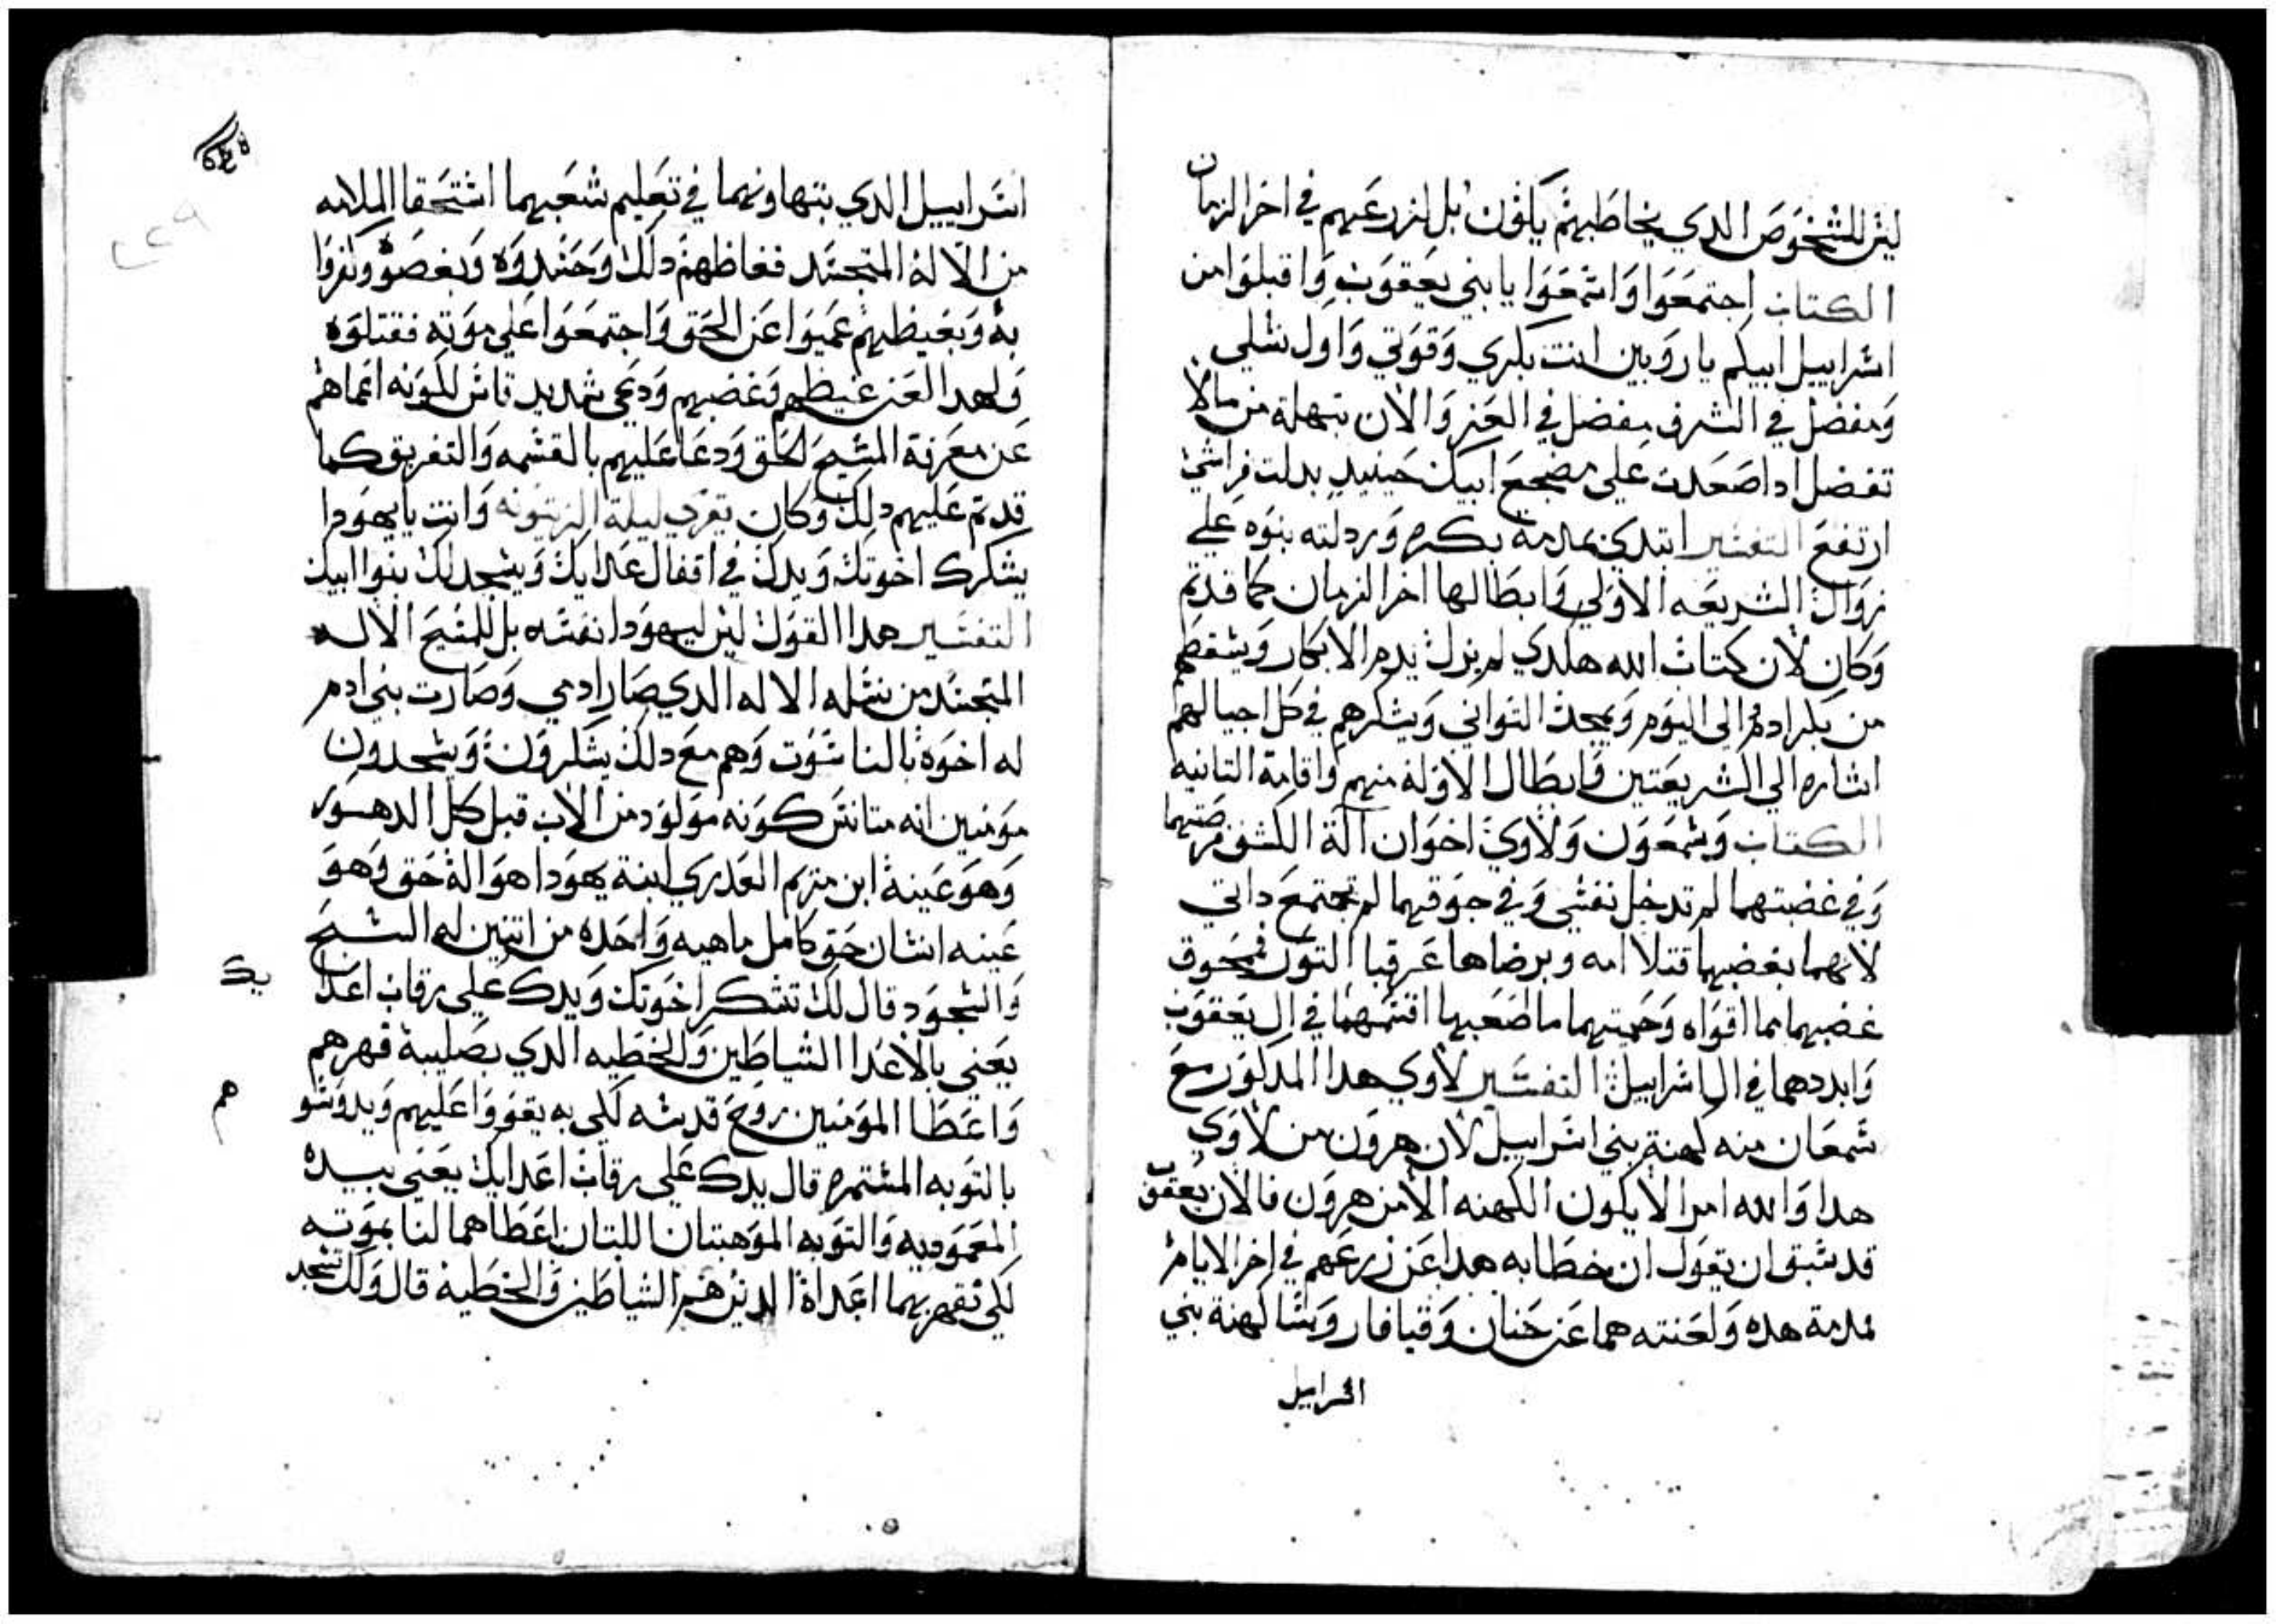 ليس للشخوص الدي يخاطبهم يكون بل لزرعهم في اخر الزمان
الكتاب اجتمعوا واسمعوا يا بني يعقوب واقبلوا من
اسراييل ابيكم يا روبين انت بكري وقوتي واول نسلي
ومفضل في الشرف مفضل في العز والان تهملة من مالا
تفضل ادا صعدت علي مضجع ابيك حينيد بدلت فراشي
ارتفع التفسير ابتدي بمدمة بكره وردلته بنوه علي
زوال الشريعه الاولي وابطالها اخر الزمان كما قد تم
وكان لان كتاب الله هلدي لم يزل يدم الابكار ويسقطهم
من بكر ادم الي اليوم ويمجد التواني ويشكرهم في كل اجيالهم
اشاره الي الشريعتين وابطال الاوله منهم واقامة التانيه
الكتاب وشمعون ولاوي اخوان الة الكشف مرضتهما
وفي غضبتهما لم تدخل نفسي وفي جوقهما لم تجتمع داتي
لانهما بغضبهما قتلا امه وبرضاها عرقبا التور فمحوق
غضبهما ما اقواه وحميتهما ما اصعبها اقسمهما في ال يعقوب
وابددهما في ال اسراييل التفسير لاوي هدا المدكور مع
شمعان منه كهنة بني اسراييل لان هرون من لاوي
هدا والله امر الا يكون الكهنه الا من هرون فالان يعقوب
قد سبق ان يقول ان خطابه هدا عن زرعهم في اخر الايام
فمدمة هده ولعنته هما عن حنان وقيافا روسا كهنة بني
اسراييل
اسراييل الدي بتهاونهما في تعليم شعبهما استحقا الملامه
من الاله المتجسد فغاظهم دلك وحسدوه وبغضوه وكفروا
به وبغيظهم عميوا عن الحق واجتمعوا علي موته فقتلوه
ولهدا لعن غيظهم وغضبهم ودعي شديد قاس لكونه اعماهم
عن معرفة المسيح الحق ودعا عليهم بالقسمه والتفريق كما
قد تم عليهم دلك وكان يقري ليلة الزيتونه وانت يا يهودا
يشكرك اخوتك ويدك في اقفال اعدايك ويسجد لك بنوا ابيك
التفسير هدا القول ليس ليهودا نفسه بل للمسيح الاله
المتجسد من نسله الاله الدي صار ادمي وصارت بني ادم
له اخوة بالناسوت وهم مع دلك يشكرون ويسجدون
مومنين انه متانس كونه مولود من الاب قبل كل الدهور
وهو عينة ابن مريم العدري ابنة يهودا هو اله حق وهو
عينه انسان حق كامل ماهيه واحده من اتنين له السبح
والسجود قال لك تشكر اخوتك ويدك علي رقاب اعدا يك
يعني بالاعدا الشياطين والخطيه الدي بصليبه قهرهم
واعطا المومنين روح قدسه لكي به يقووا عليهم ويدوسوهم
بالتوبه المستمره قال يدك علي رقاب اعدايك يعني بيده
المعموديه والتوبه الموهبتان اللتان اعطاهما لنا بموته
لكي نقهر بهما اعداة الدين هم الشياطين والخطية قال ولك تسجد